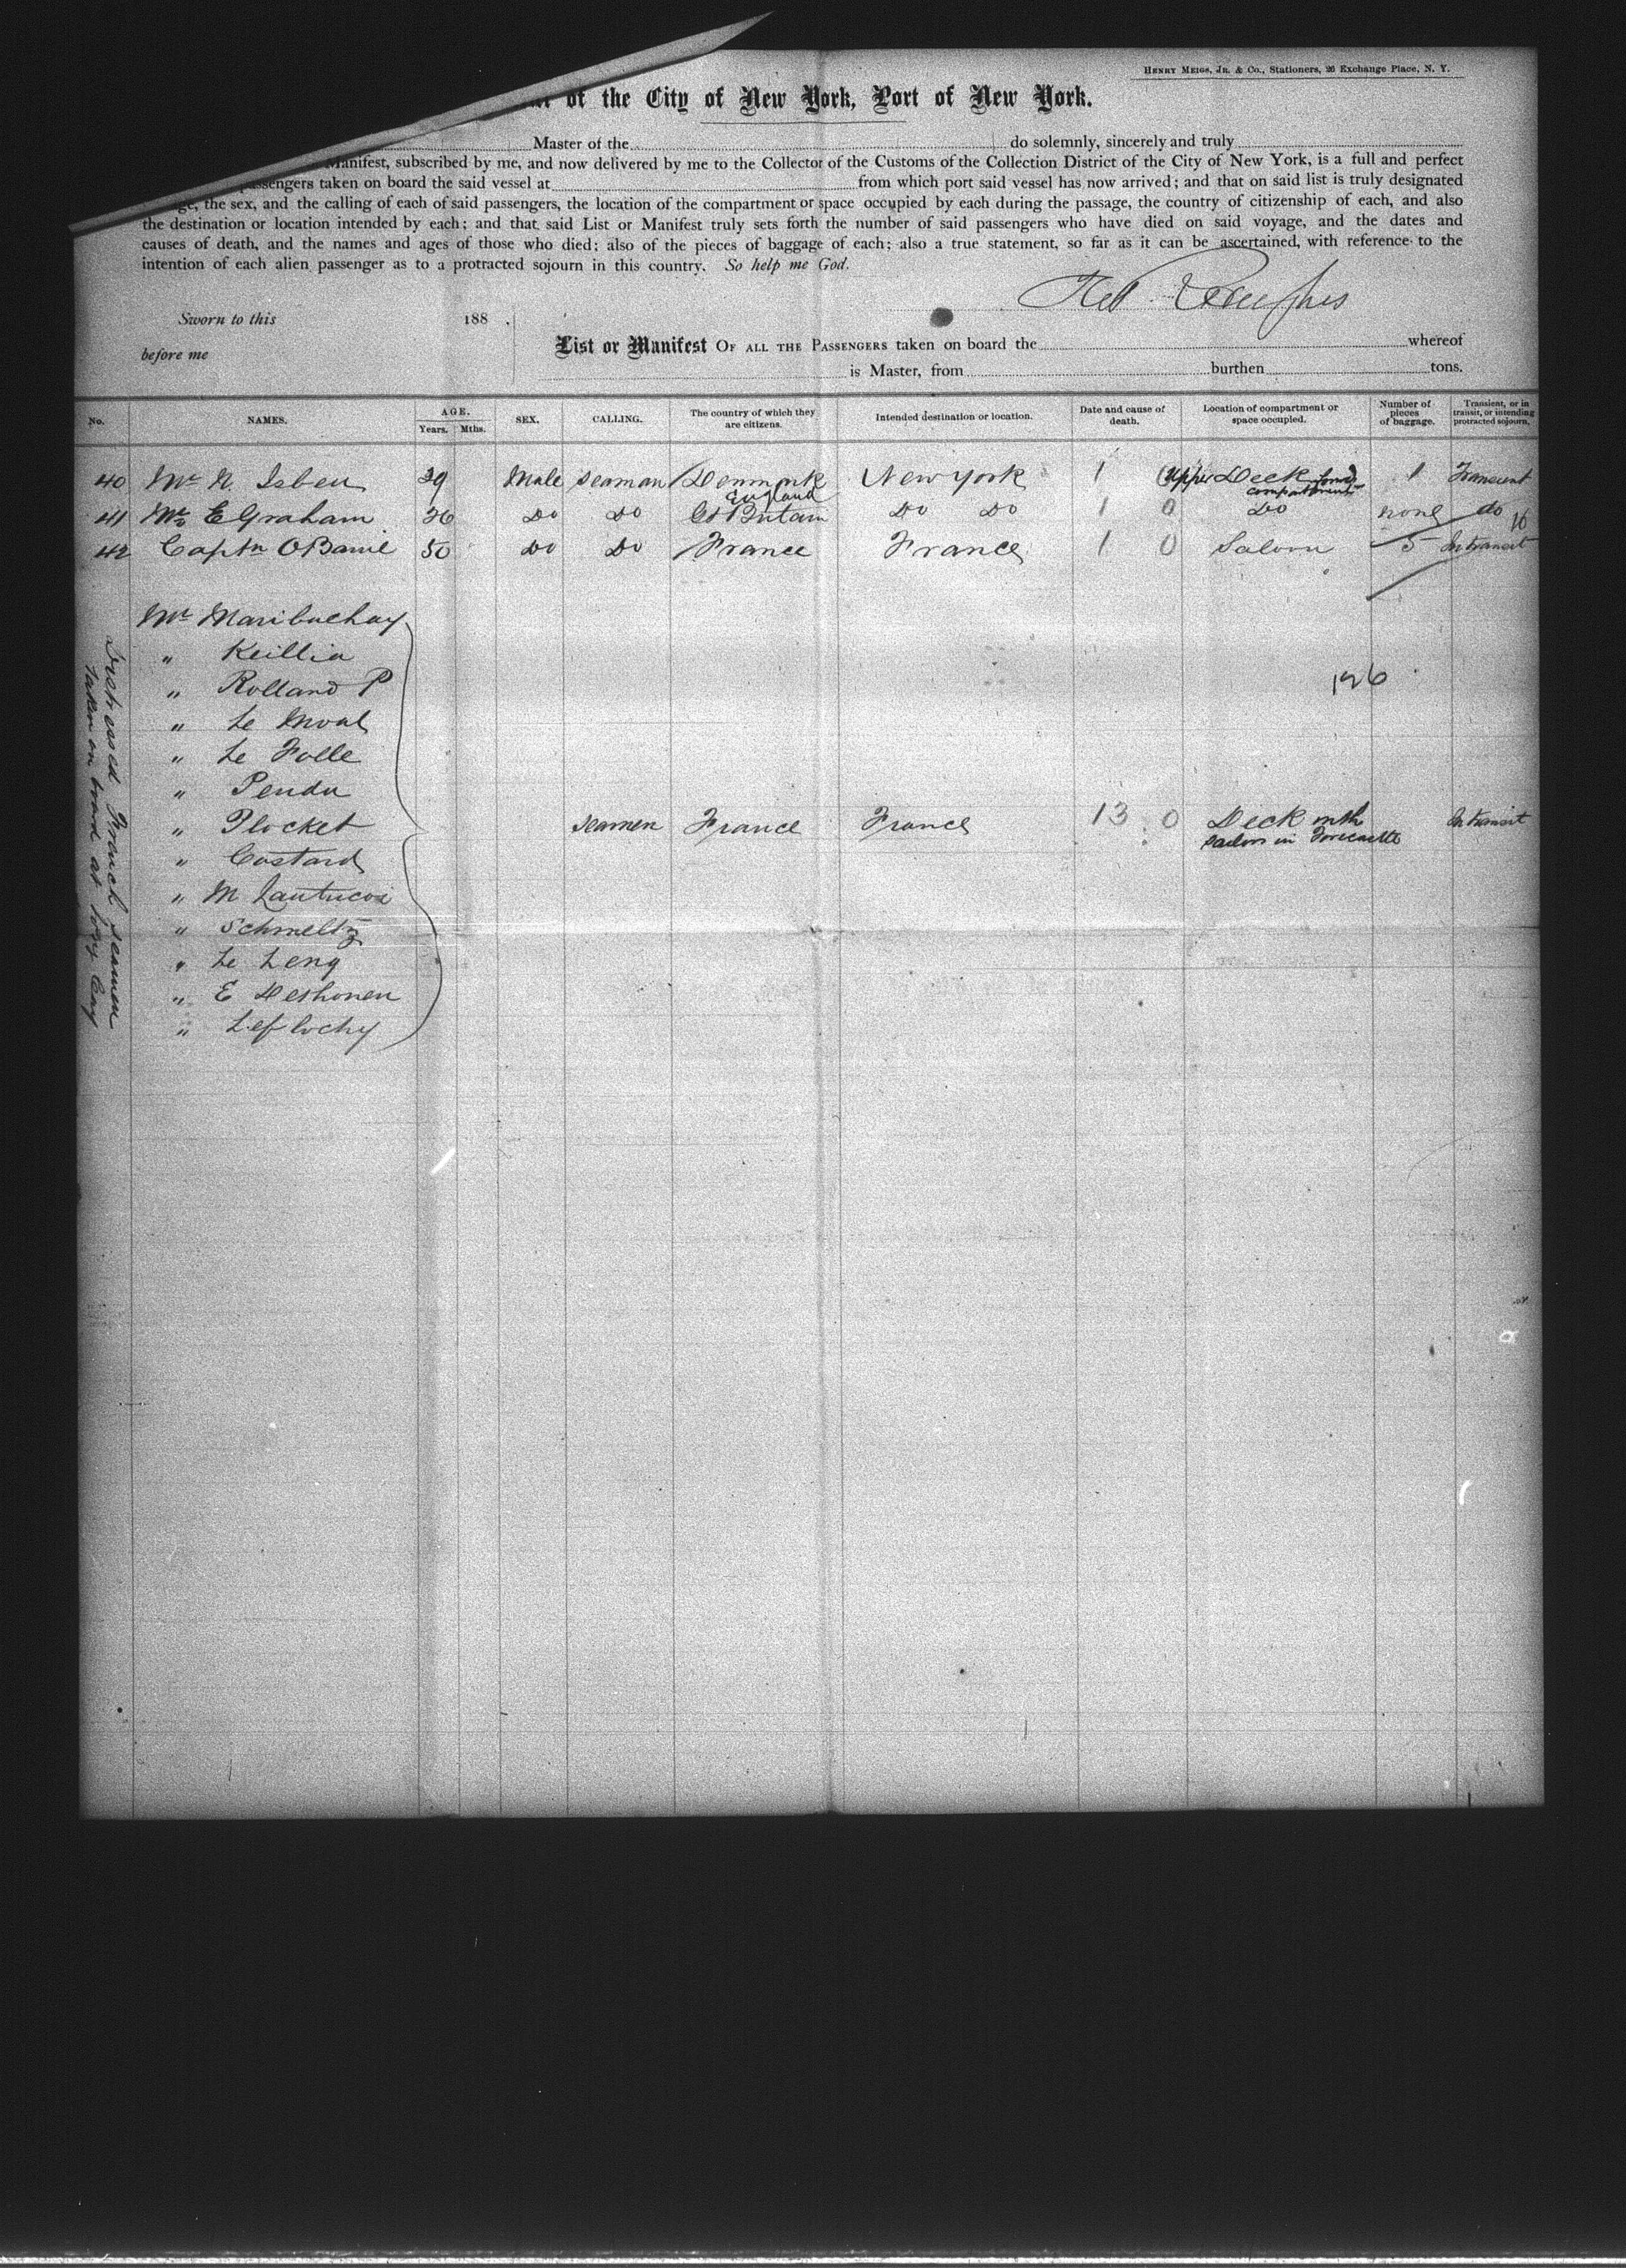 HENRY MEIGS, JR. & CO., Stationers, 26 Exchange Place, N. Y.
of the City of New York, Port of New York.
Master of the do solemnly, sincerely and truly
Manifest, subscribed by me, and now delivered by me to the Collector of the Customs of the Collection District of the City of New York, is a full and perfect
passengers taken on board the said vessel at from which port said vessel has now arrived; and that on said list is truly designated
the sex, and the calling of each of said passengers, the location of the compartment or space occupied by each during the passage, the country of citizenship of each, and also
the destination or location intended by each; and that said List or Manifest truly sets forth the number of said passengers who have died on said voyage, and the dates and
causes of death, and the names and ages of those who died; also of the pieces of baggage of each; also a true statement, so far as it can be ascertained, with reference to the
intention of each alien passenger as to a protracted sojourn in this country. So help me God.
Sworn to this 188 .
before me
List or Manifest OF ALL THE PASSENGERS taken on board the whereof
is Master, from burthen tons.
No. NAMES. AGE. Years. Mths. SEX. CALLING. The country of which they are citizens. Intended destination or location. Date and cause of death. Location of compartment or space occupied. Number of pieces of baggage. Transient, or in transit, or intending protracted sojourn.
40 Mr N. Isben 39 Male Seaman Denmark New York 1 Upper Deck compartment 1 Transient
41 Mr E Graham 36 Do Do England Gt Britain Do Do 1 0 Do none do 16
42 Captn O Barrie 50 Do Do France France 1 0 Saloon 5 In transit
Mr Maribuchay
" Keillia
" Rolland P
126
" Le Moal
" Le Folle
" Pendu
" Plocket Seamen France France 13 0 Deck with Sailors in Forecastle In transit
" Costard
" M Lautucoi
" Schmeltz
" Le Leng
" E Deshonen
" Leflochy
Distressed French Seamen
taken on board at Cay